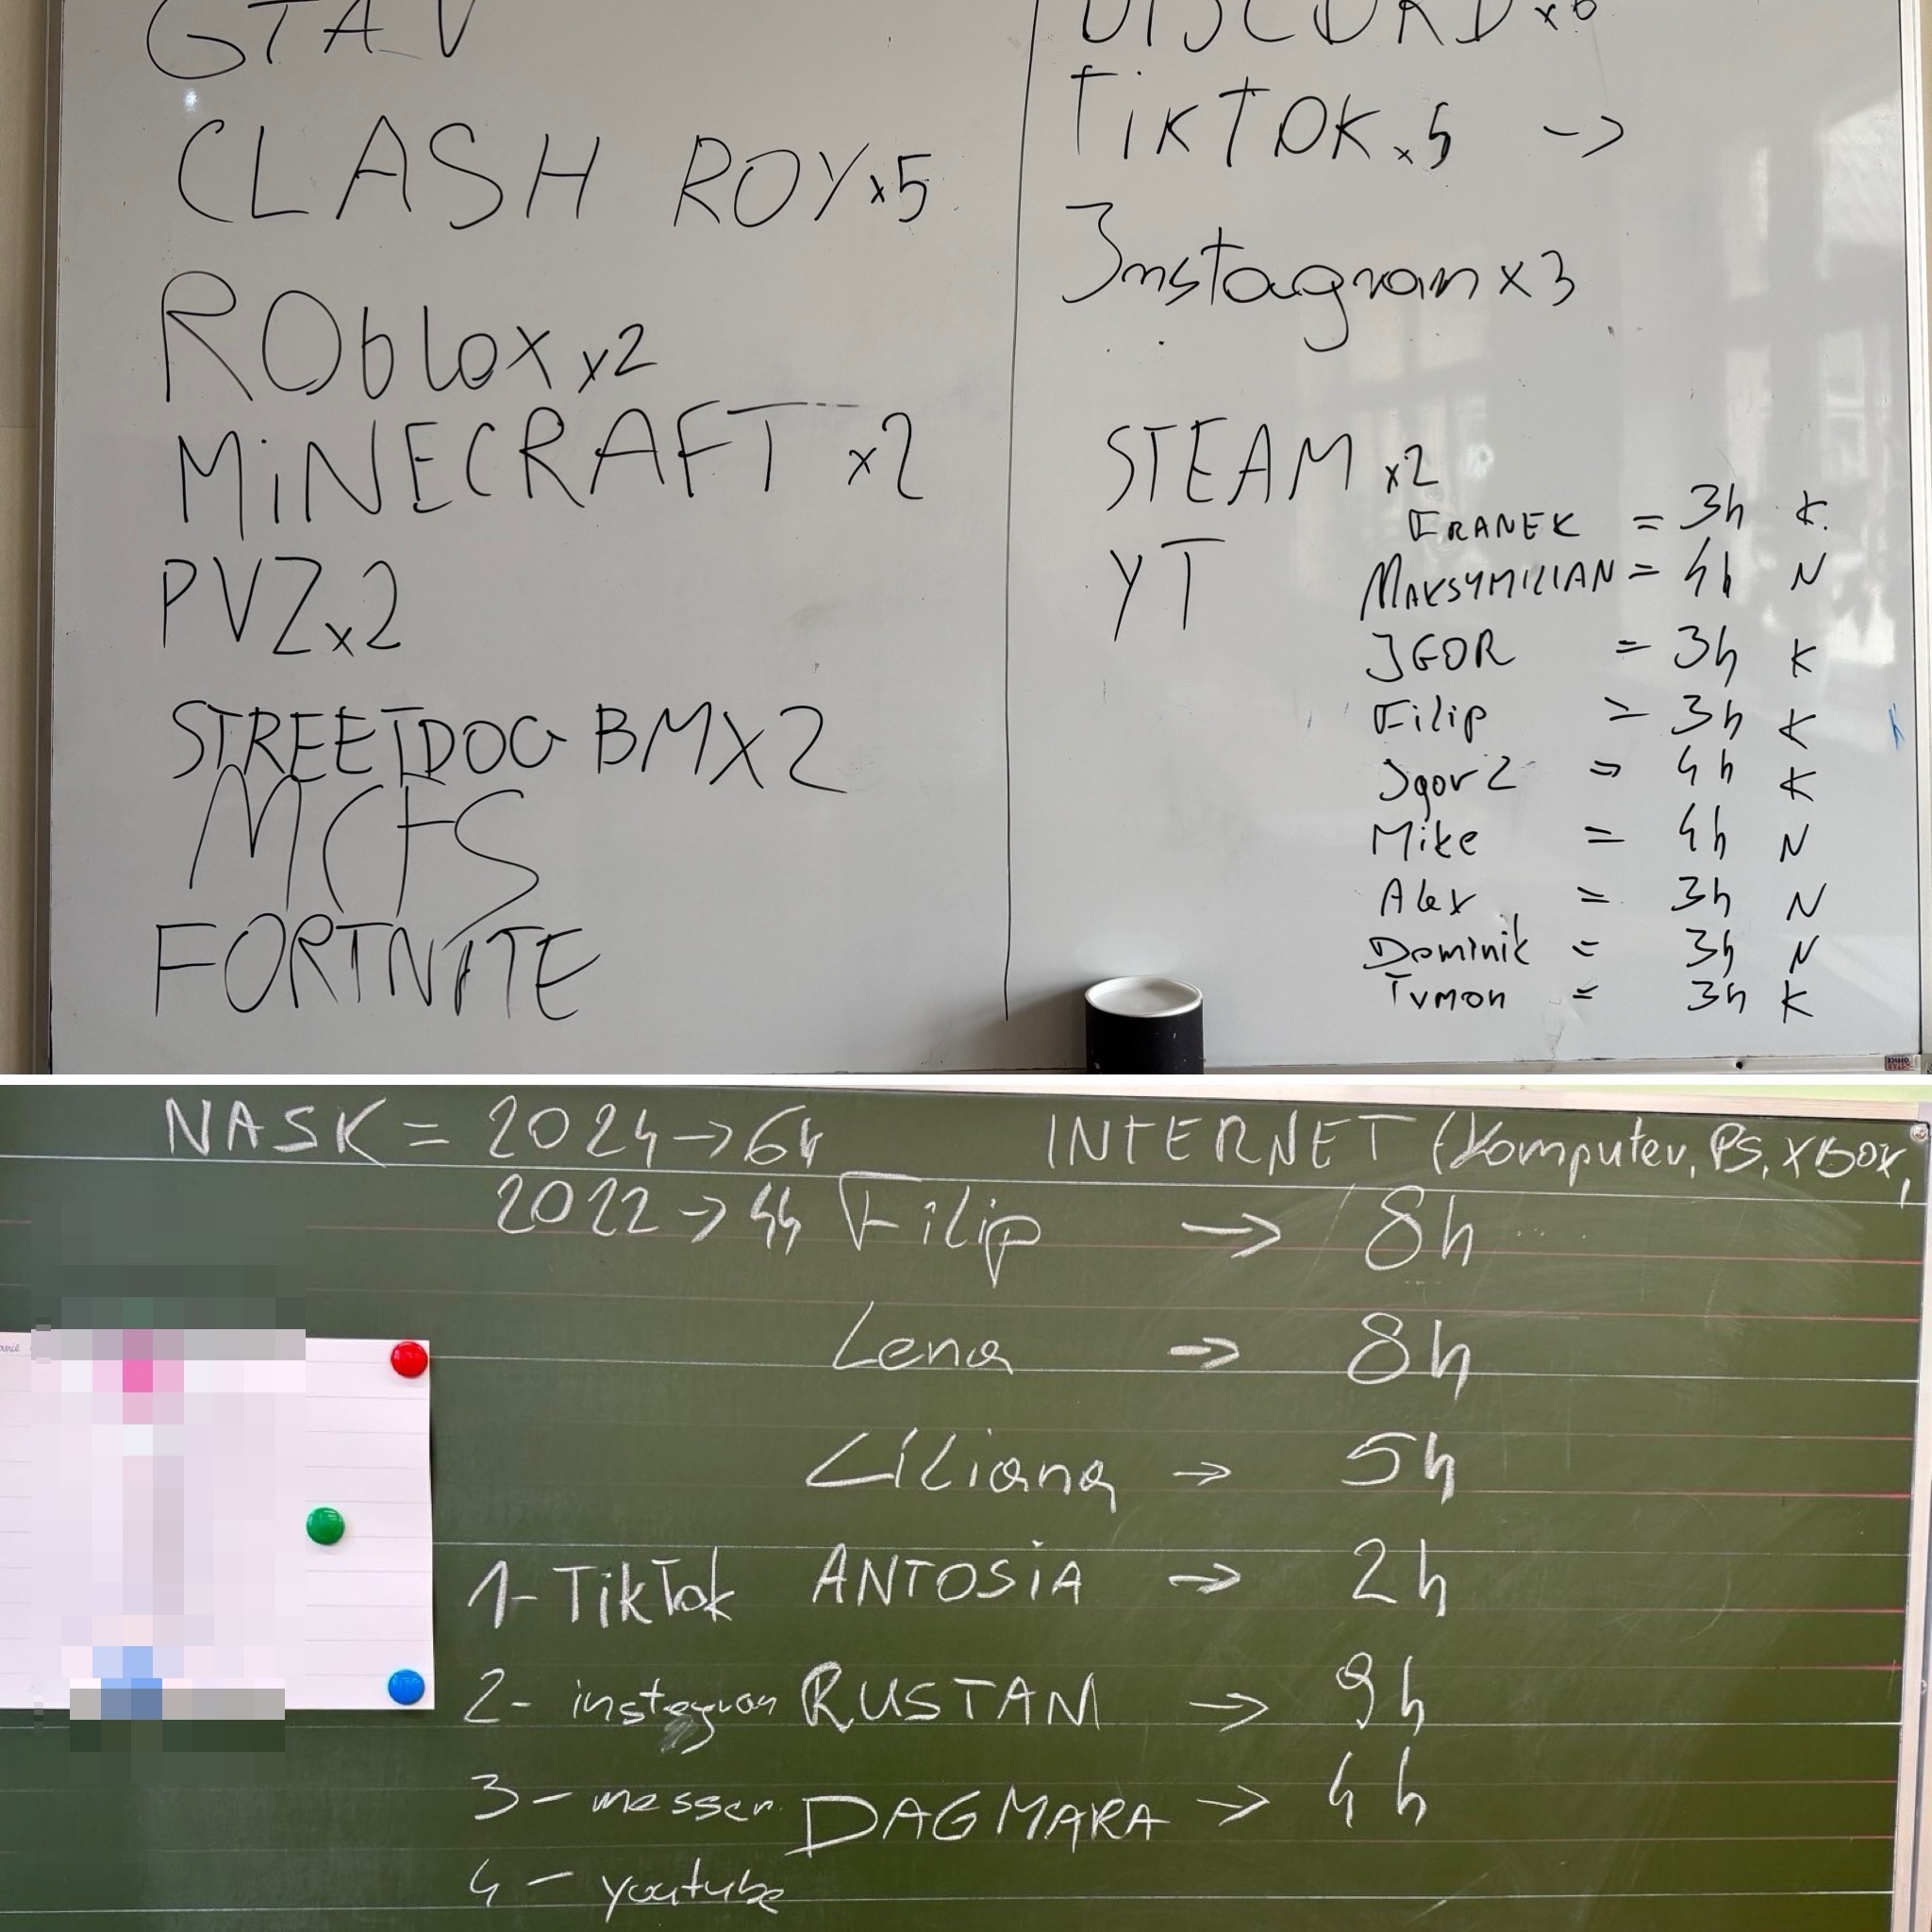 GTA V
CLASH ROY x5
ROblox x2
MiNECRAFT x2
PVZ x2
STREETDOG BMX 2
MCFS
FORTNITE
DISCORD x6
TikTOK x5 ->
Instagram x3
STEAM x2
YT
FRANEK = 3h K
MAKSYMILIAN = 4h N
IGOR = 3h K
Filip = 3h K
Igor 2 = 4h K
Mike = 4h N
Alex = 3h N
Dominik = 3h N
Tymon = 3h K
NASK = 2024 -> 64
2022 -> 44
INTERNET (Komputer, PS, XBOX,
Filip -> 8h
Lena -> 8h
Liliana -> 5h
ANTOSiA -> 2h
RUSTAM -> 9h
DAGMARA -> 4h
1- TikTok
2- instagram
3- messen.
4- youtube